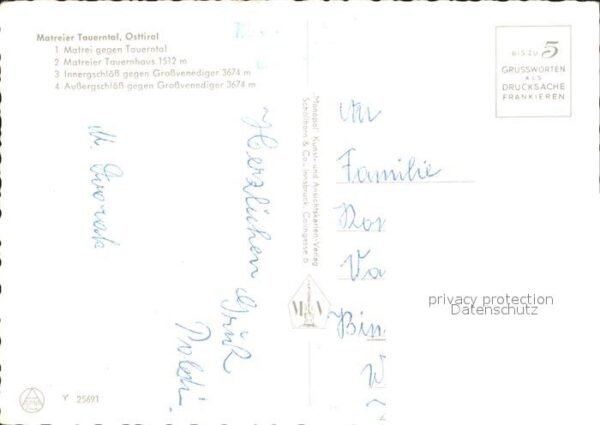 Matreier Tauerntal, Osttirol
1 Matrei gegen Tauerntal
2 Matreier Tauernhaus 1512 m
3 Innergschlöß gegen Großvenediger 3674 m
4 Außergschlöß gegen Großvenediger 3674 m
BIS ZU 5
GRUSSWORTEN
ALS
DRUCKSACHE
FRANKIEREN
"Monopol" Kunst- und Ansichtskarten-Verlag
Schöllhorn & Co., Innsbruck,
Herzlichen Gruß
M.
An
Familie
Va
Bin
W
privacy protection
Datenschutz
Y 25691